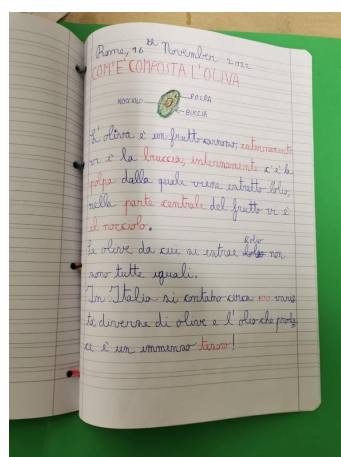 Rome, 16th November 2022
COM'È COMPOSTA L'OLIVA
POLPA
NOCCIOLO
BUCCIA
L'oliva è un frutto carnoso, esternamente
vi è la buccia, internamente c'è la
polpa dalla quale viene estratto l'olio,
nella parte centrale del frutto vi è
il nocciolo.
l'olio
Le olive da cui si estrae non
sono tutte uguali.
In Italia si contano circa 100 varie
tà diverse di olive e l'olio che produ
ce è un immenso tesoro!